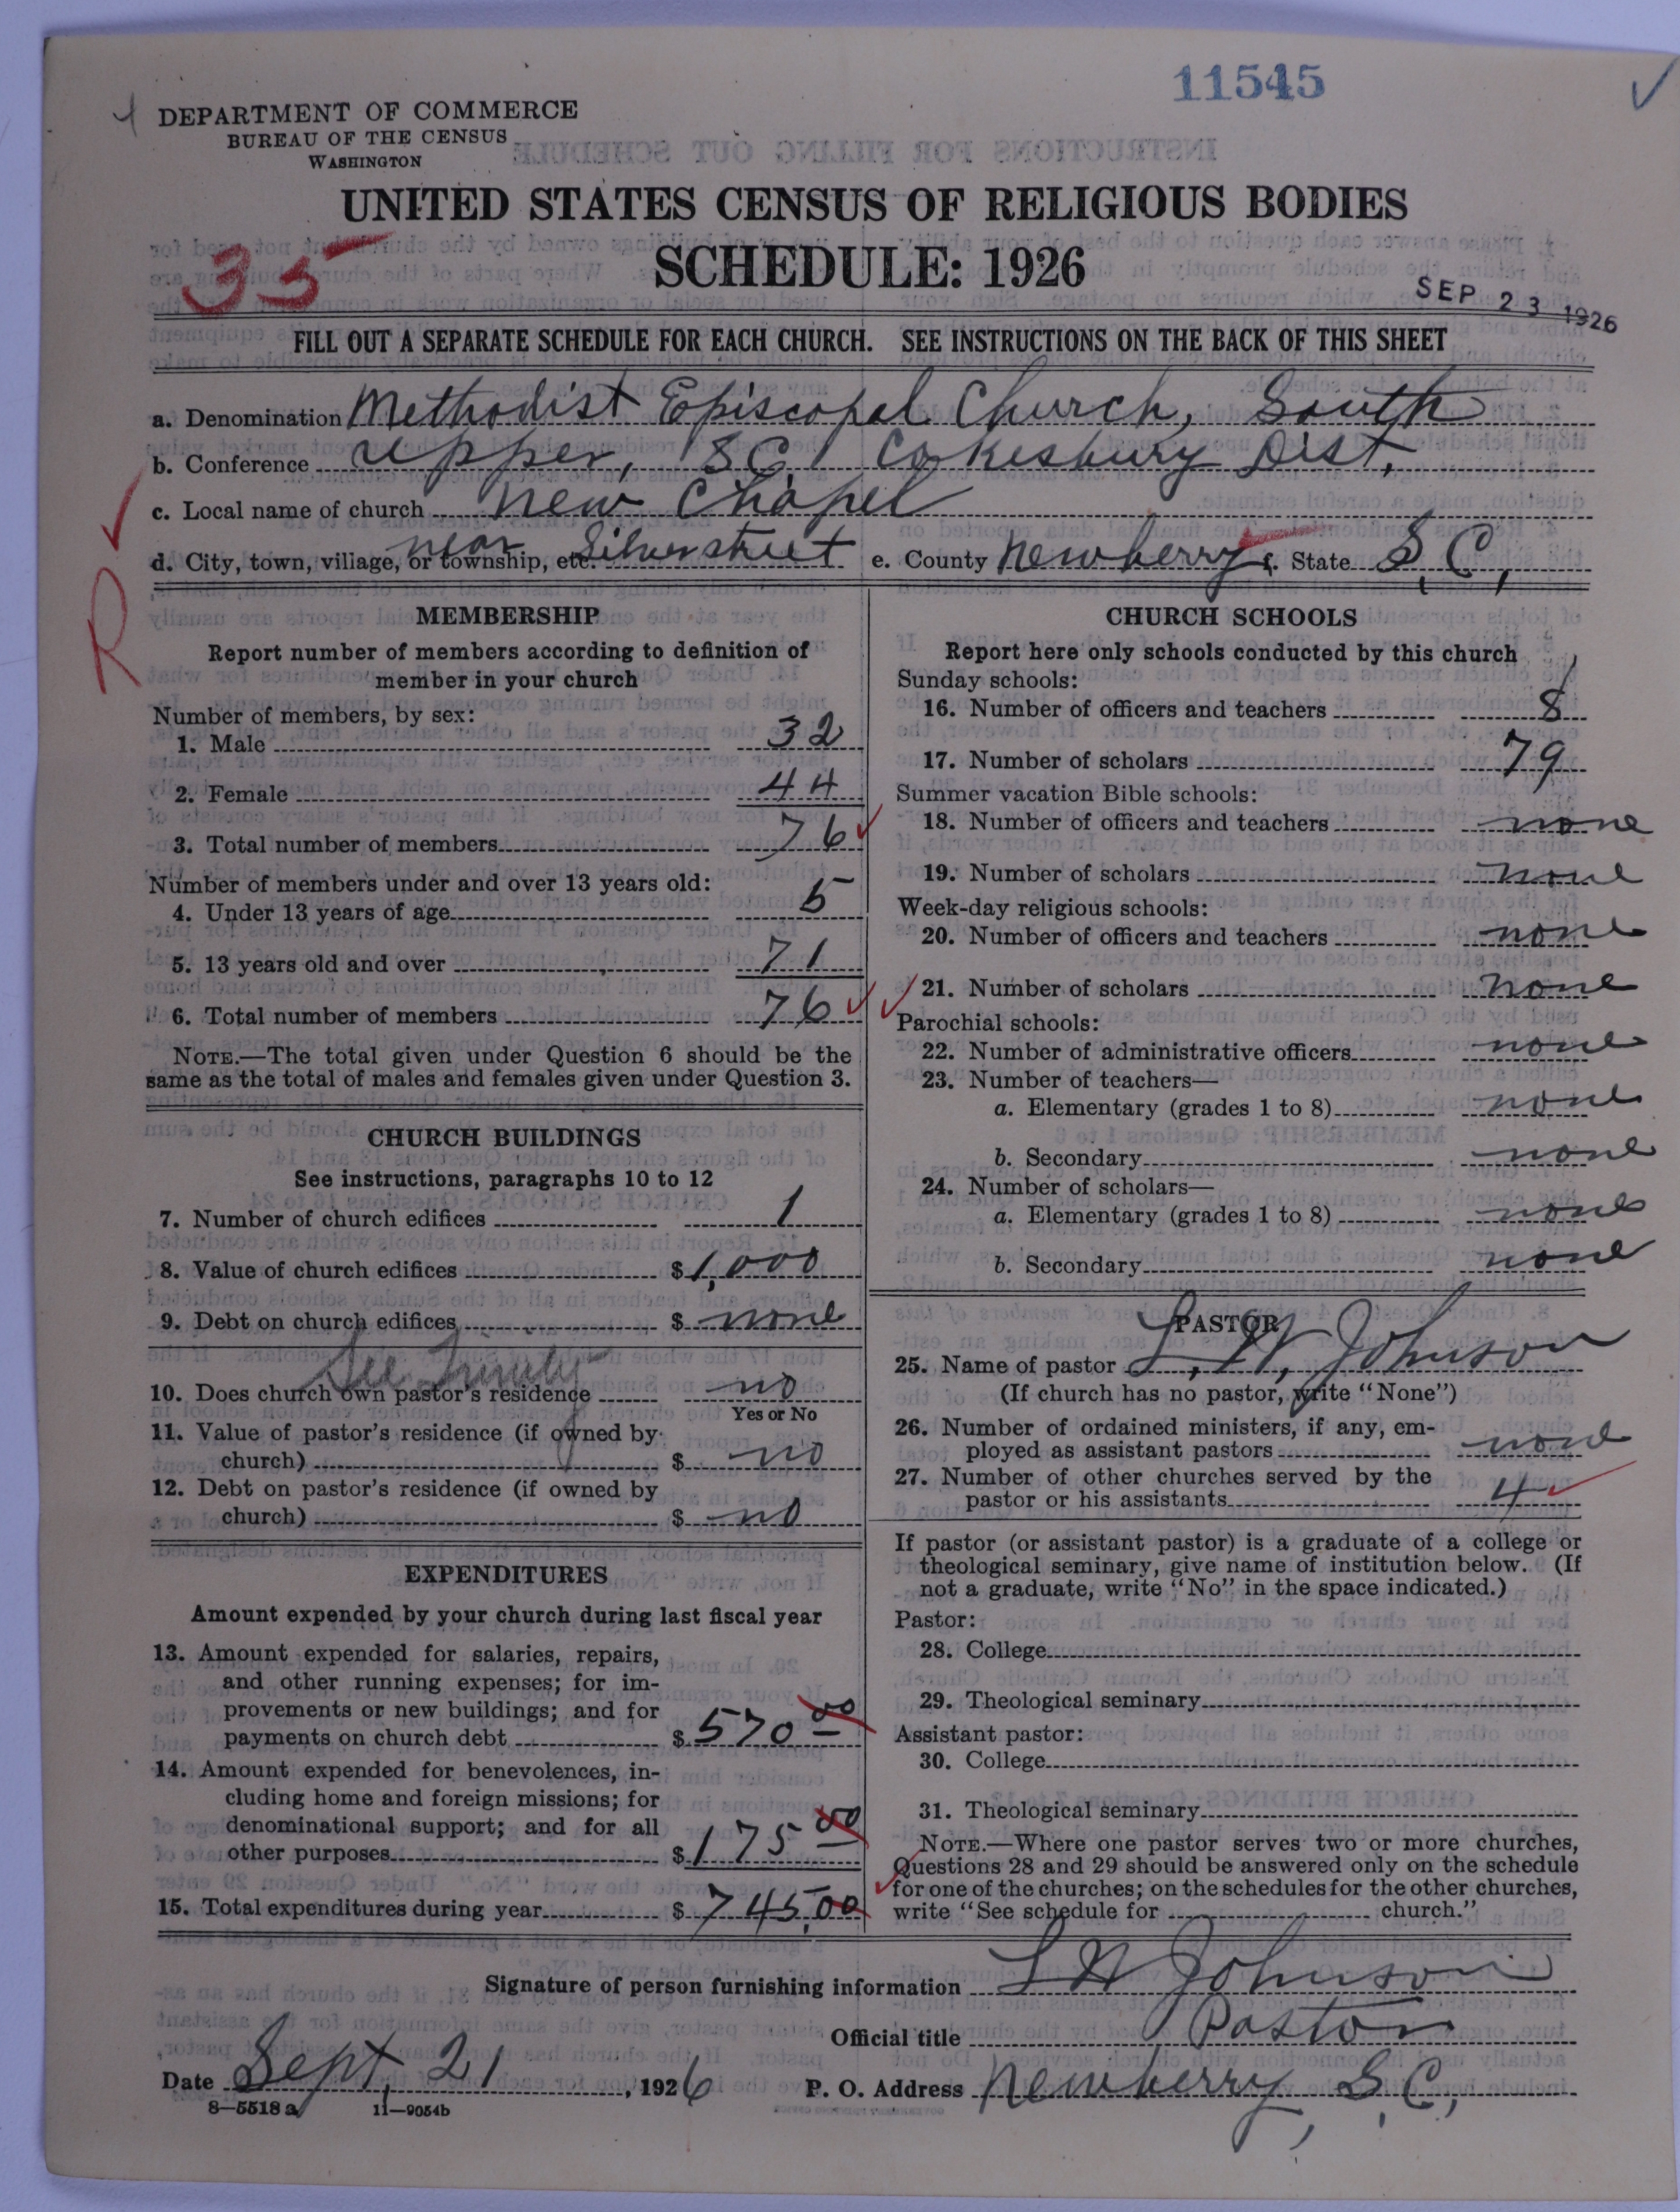 11545
DEPARTMENT OF COMMERCE
BUREAU OF THE CENSUS
WASHINGTON
UNITED STATES CENSUS OF RELIGIOUS BODIES
SCHEDULE: 1926
35
SEP 23 1926
FILL OUT A SEPARATE SCHEDULE FOR EACH CHURCH. SEE INSTRUCTIONS ON THE BACK OF THIS SHEET
a. Denomination Methodist Episcopal Church, South
b. Conference Upper, S.C. Cokesbury Dist,
c. Local name of church New Chapel
d. City, town, village, or township, etc. near Silverstreet e. County Newberry f. State S.C,
R
MEMBERSHIP
Report number of members according to definition of
member in your church
Number of members, by sex:
1. Male 32
2. Female 44
3. Total number of members 76
Number of members under and over 13 years old:
4. Under 13 years of age 5
5. 13 years old and over 71
6. Total number of members 76
NOTE.—The total given under Question 6 should be the
same as the total of males and females given under Question 3.
CHURCH BUILDINGS
See instructions, paragraphs 10 to 12
7. Number of church edifices 1
8. Value of church edifices $ 1,000
9. Debt on church edifices $ none
See Trinity
10. Does church own pastor's residence no
Yes or No
11. Value of pastor's residence (if owned by
church) $ no
12. Debt on pastor's residence (if owned by
church) $ no
EXPENDITURES
Amount expended by your church during last fiscal year
13. Amount expended for salaries, repairs,
and other running expenses; for im-
provements or new buildings; and for
payments on church debt $ 570 00
14. Amount expended for benevolences, in-
cluding home and foreign missions; for
denominational support; and for all
other purposes $ 175 00
15. Total expenditures during year $ 745.00
CHURCH SCHOOLS
Report here only schools conducted by this church
Sunday schools:
16. Number of officers and teachers 8
17. Number of scholars 79
Summer vacation Bible schools:
18. Number of officers and teachers none
19. Number of scholars none
Week-day religious schools:
20. Number of officers and teachers none
21. Number of scholars none
Parochial schools:
22. Number of administrative officers none
23. Number of teachers—
a. Elementary (grades 1 to 8) none
b. Secondary none
24. Number of scholars—
a. Elementary (grades 1 to 8) none
b. Secondary none
PASTOR
25. Name of pastor L, W, Johnson
(If church has no pastor, write "None")
26. Number of ordained ministers, if any, em-
ployed as assistant pastors none
27. Number of other churches served by the
pastor or his assistants 4
If pastor (or assistant pastor) is a graduate of a college or
theological seminary, give name of institution below. (If
not a graduate, write "No" in the space indicated.)
Pastor:
28. College
29. Theological seminary
Assistant pastor:
30. College
31. Theological seminary
NOTE.—Where one pastor serves two or more churches,
Questions 28 and 29 should be answered only on the schedule
for one of the churches; on the schedules for the other churches,
write "See schedule for church."
Signature of person furnishing information L W Johnson
Official title Pastor
Date Sept, 21, 1926 P. O. Address Newberry, S.C,
8—5518 a 11—9054b